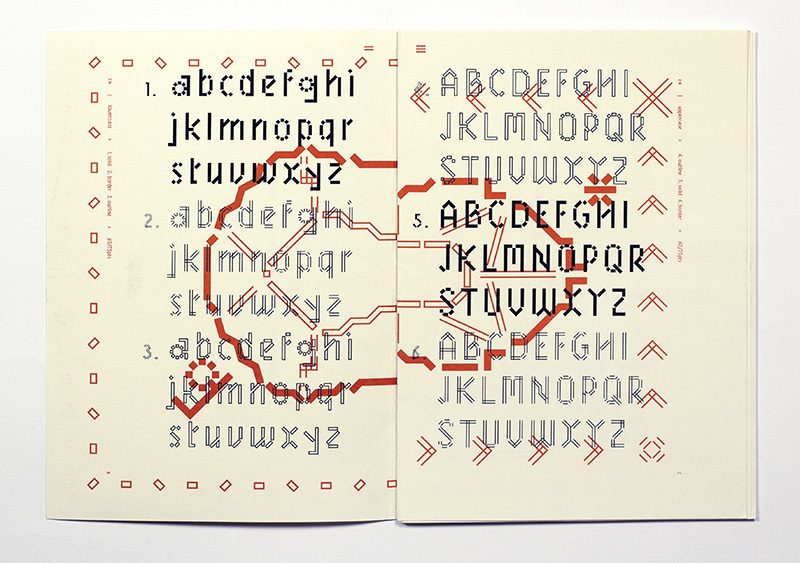 1. abcdefghi
jklmnopqr
stuvwxyz
2. abcdefghi
jklmnopqr
stuvwxyz
3. abcdefghi
jklmnopqr
stuvwxyz
EN | lowercase > 1. solid 2. border 3. outline > 60/75pts
4. ABCDEFGHI
JKLMNOPQR
STUVWXYZ
5. ABCDEFGHI
JKLMNOPQR
STUVWXYZ
6. ABCDEFGHI
JKLMNOPQR
STUVWXYZ
EN | uppercase > 4. outline 5. solid 6. border > 60/75pts